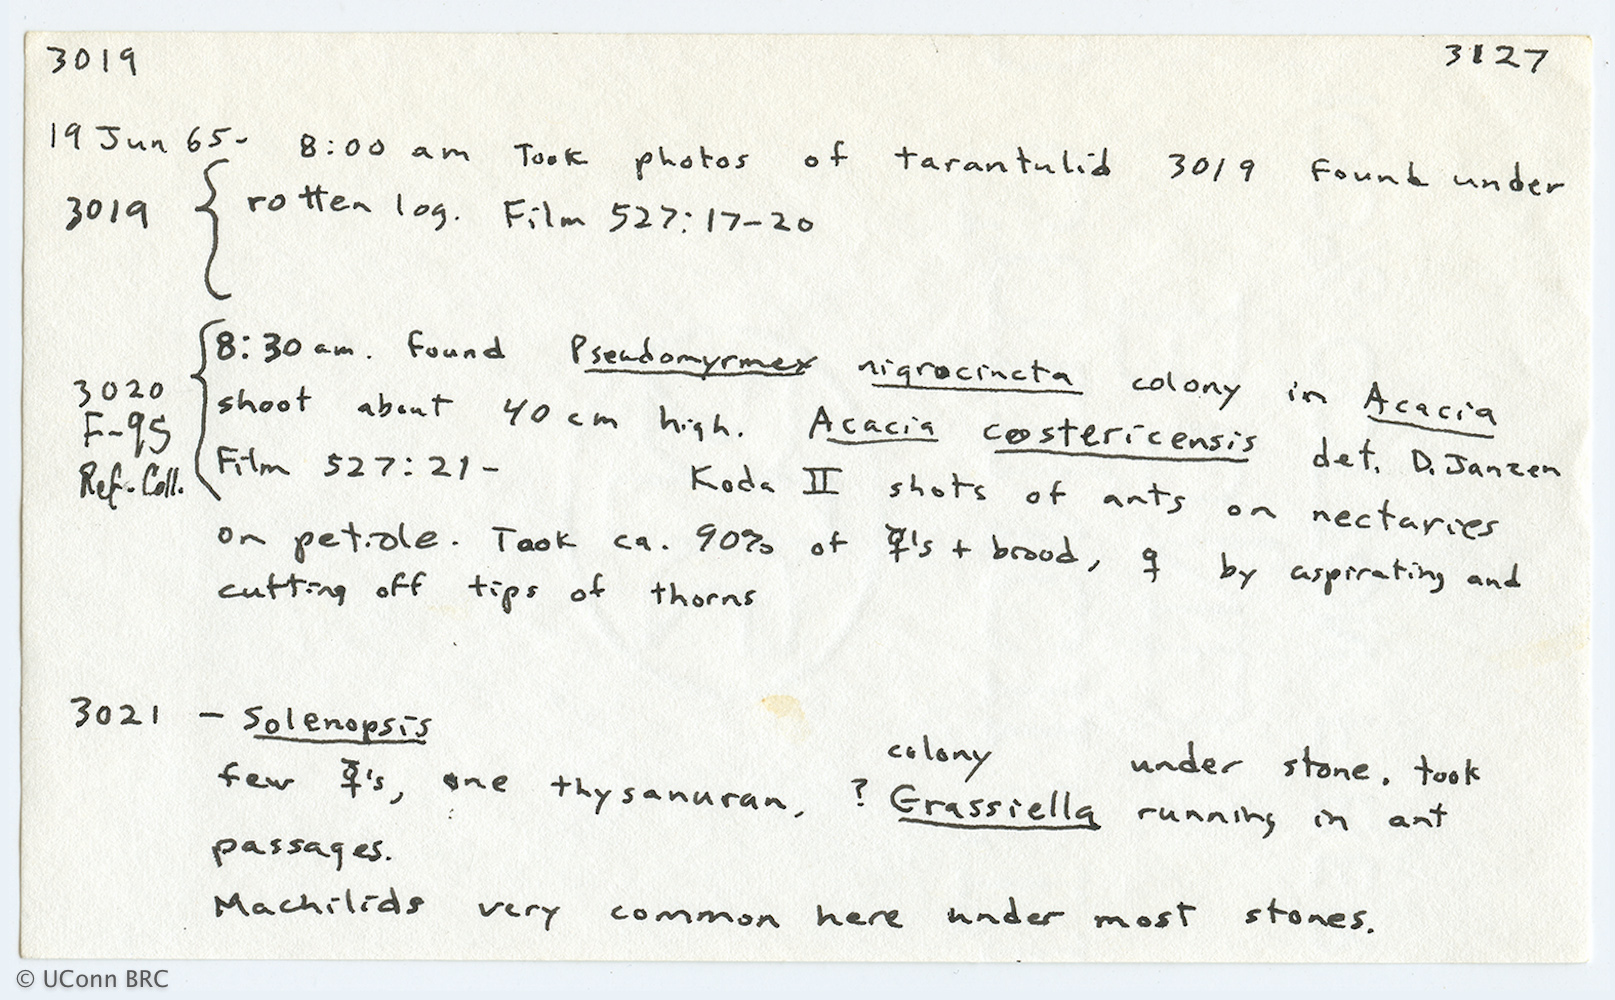 3019 3127
19 Jun 65- 8:00 am Took photos of tarantulid 3019 found under
3019 rotten log. Film 527:17-20
8:30 am. Found Pseudomyrmex nigrocincta colony in Acacia
3020 shoot about 40 cm high. Acacia costericensis det. D. Janzen
F-95
Ref. Coll. Film 527:21- Koda II shots of ants on nectaries
on petiole. Took ca. 90% of ☿'s + brood, ♀ by aspirating and
cutting off tips of thorns
3021 - Solenopsis colony under stone. took
few ☿'s, one thysanuran, ? Grassiella running in ant
passages.
Machilids very common here under most stones.
© UConn BRC